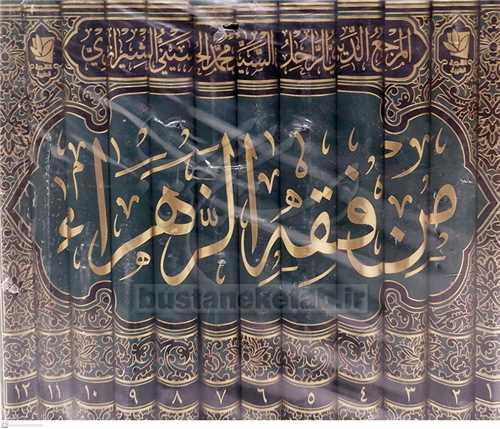 المرجع الديني الراحل السيد محمد الحسيني الشيرازي
من فقه الزهراء
bustaneketab.ir
١٢ ١١ ١٠ ٩ ٨ ٧ ٦ ٥ ٤ ٣ ٢ ١